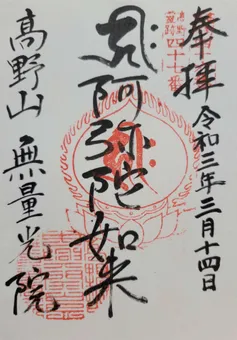 奉拝
令和三年三月十四日
阿弥陀如来
高野山 無量光院